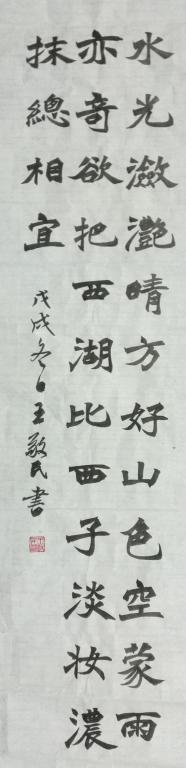 水光潋滟晴方好山色空蒙雨
亦奇欲把西湖比西子淡妆濃
抹總相宜
戊戌冬日王敬民書